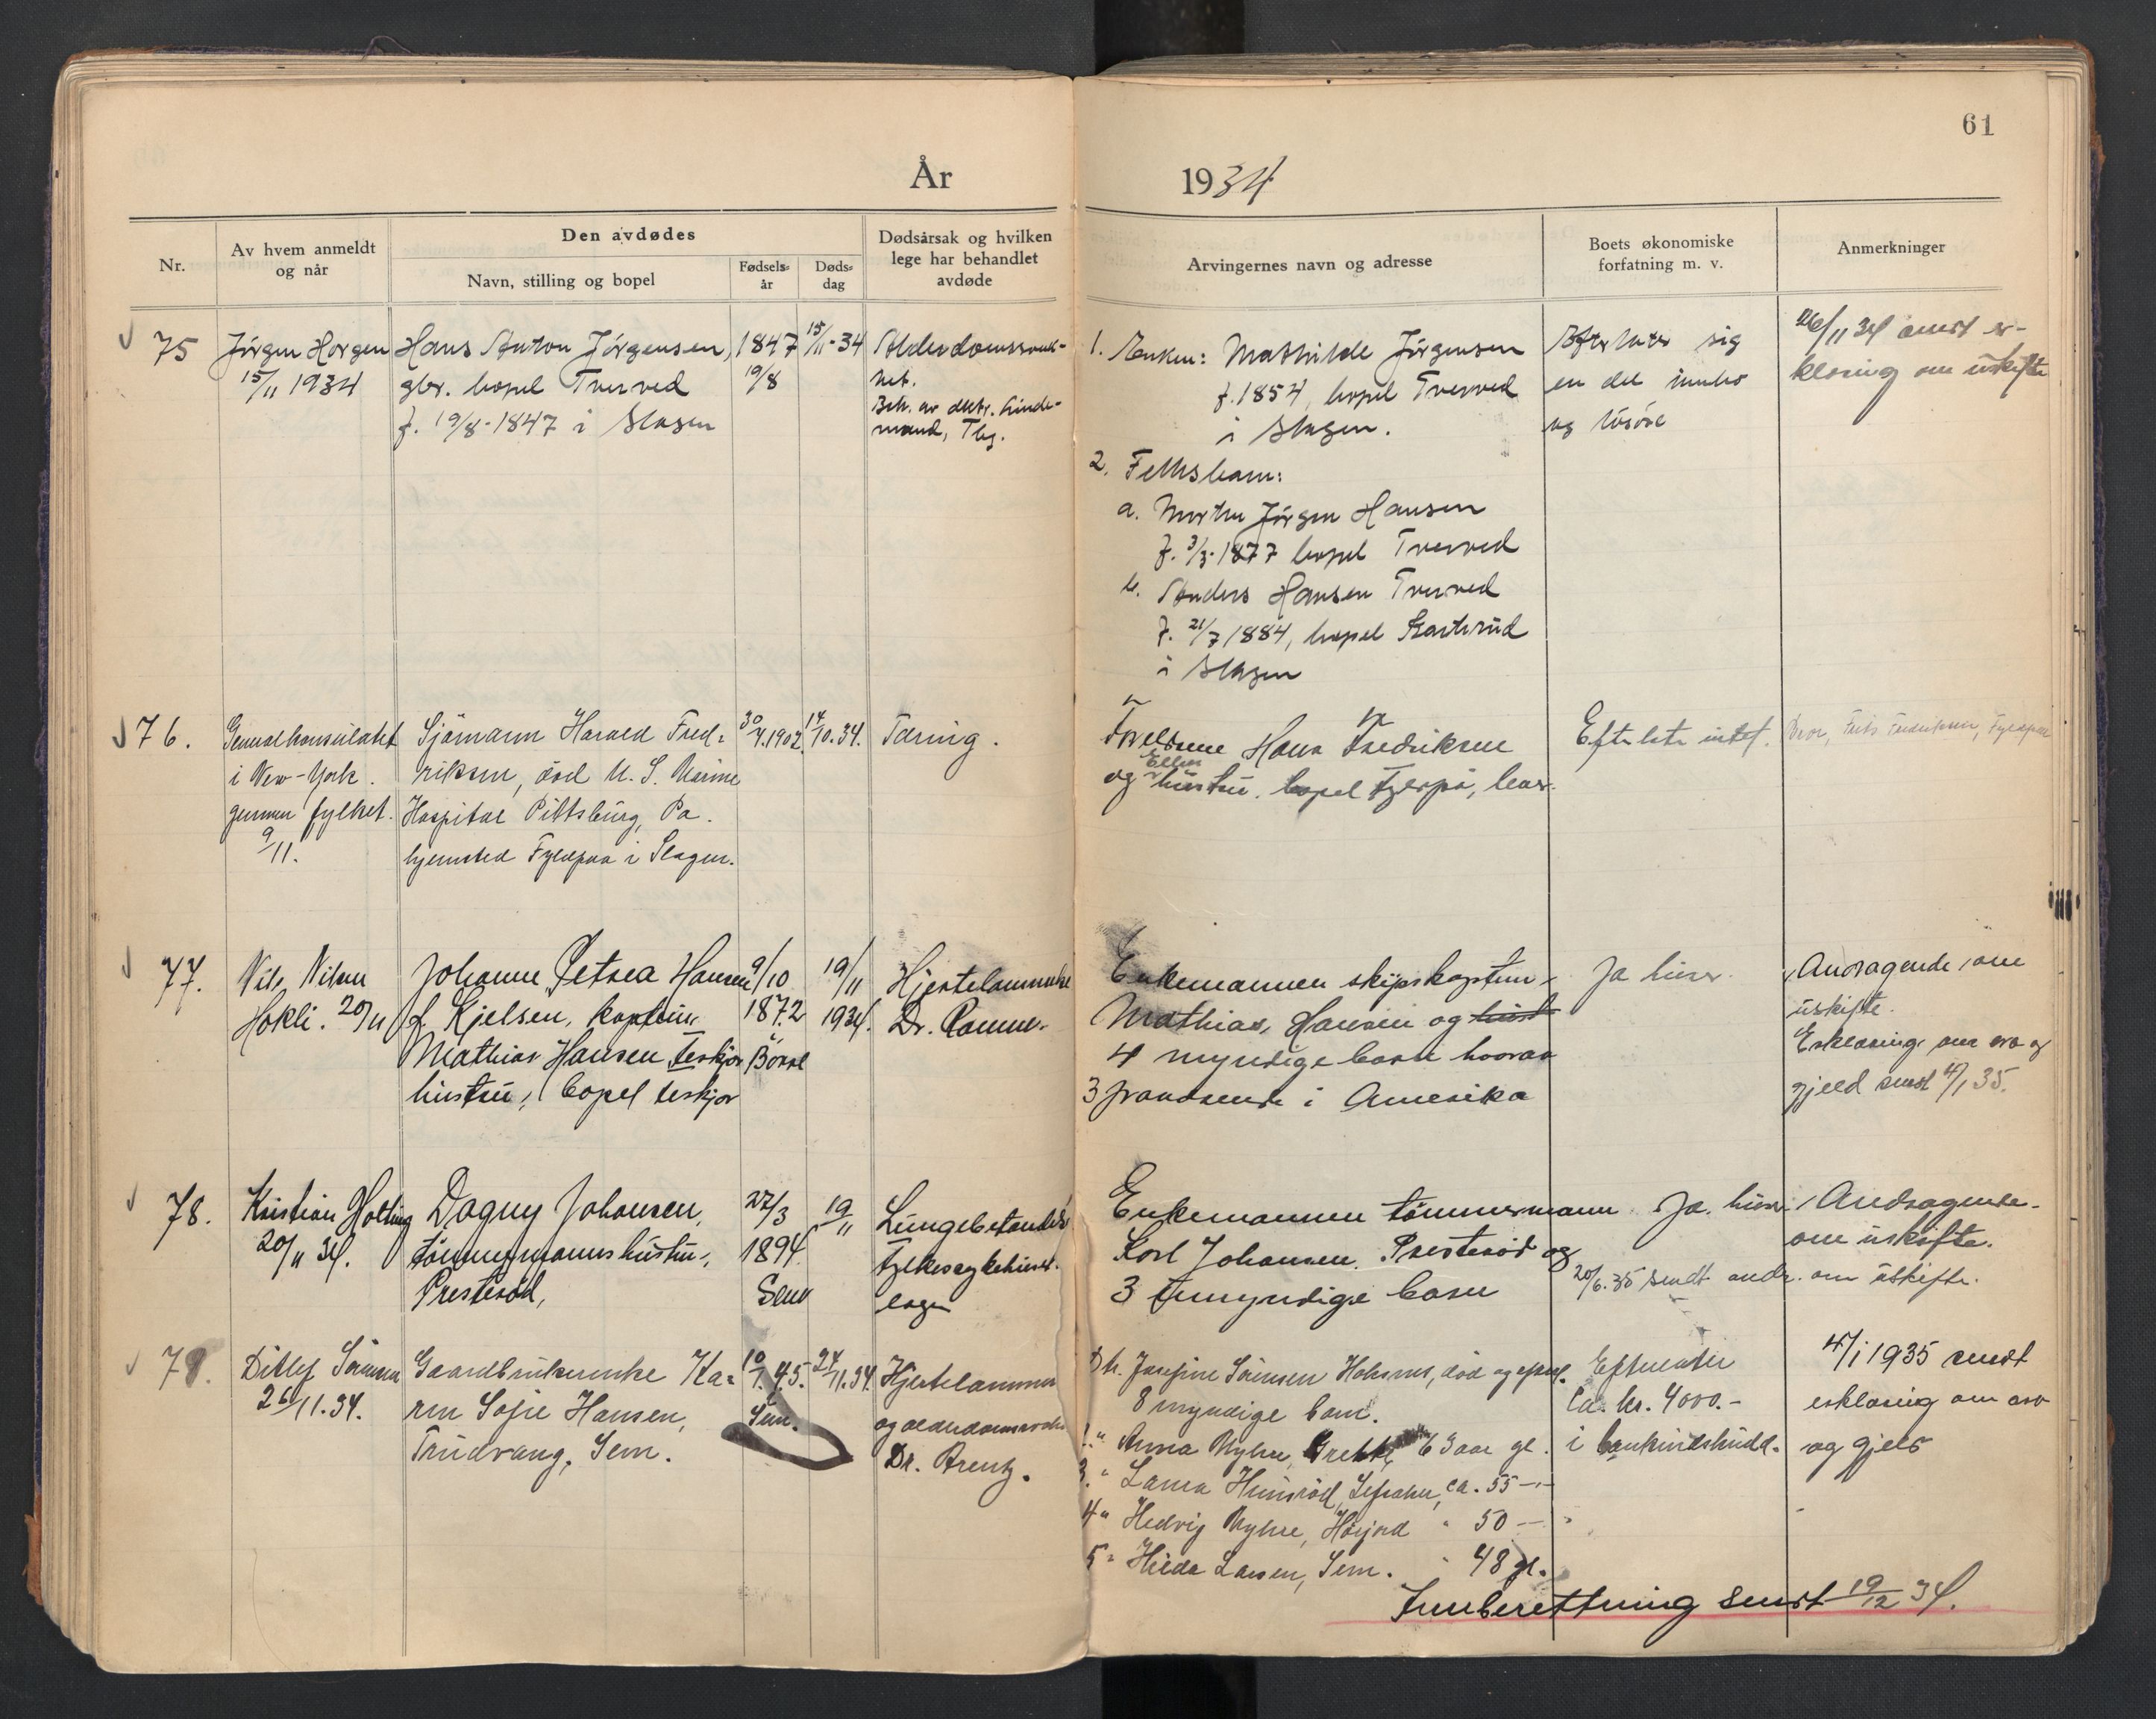 61
År 1934
Nr.
Av hvem anmeldt
og når
Den avdødes
Navn, stilling og bopel
Fødsels-
år
Døds-
dag
Dødsårsak og hvilken
lege har behandlet
avdøde
Arvingernes navn og adresse
Boets økonomiske
forfatning m. v.
Anmerkninger
75
Jörgen Horgen
15/11 1934
Hans Anton Jörgensen,
gbr. bopel Tverved
f. 19/8-1847 i Slagen
1847
19/8
15/11-34
Alderdomssvak-
het.
Beh. av dktr. Linde-
mand, Tbg.
1. Enken: Mathilde Jörgensen
f. 1854, bopel Tverved
i Slagen.
2. Fellesbarn:
a. Jörgen Hansen
f. 3/3-1877 bopel Tverved
b. Anders Hansen Tverved
f. 21/7 1884, bopel
i Slagen
Efterlater sig
en del innbo
og lösöre
16/11 34 sendt er-
klæring om uskifte
76.
Generalkonsulatet
i New-York.
gjennem fylket.
9/11.
Sjömann Harald Fred-
riksen, död U. S. Marine
Hospital Pittsburg, Pa.
hjemsted Fyldpaa i Slagen.
30/4.1902.
14/10.34.
Tæring.
Foreldrene Hans Fredriksen
Ellen
og hustru, bopel Fyldpå, lever.
Efterlater intet.
Bror, Frits Fredriksen, Fyldpaa
77.
Nils Nilsen
Hokli. 20/11
Johanne Petrea Hansen
f. Kjelsen, kaptein
Mathias Hansen Teskjær
hustru, bopel Teskjær
9/10
1872
i Borre
19/11
1934.
Hjertelammelse
Dr.
Enkemannen skipskaptein
Mathias Hansen og hust
4 myndige barn hvorav
3 fraværende i Amerika
Ja hus
Andragende om
uskifte.
Erklæring om arv og
gjeld sendt 4/1 35.
78.
Kristian Holtung
20/11 34.
Dagny Johansen,
tömmermanns hustru,
Presteröd,
27/3
1894
Sem
19/11
Lungebetendelse
Fylkessykehuset
legen
Enkemannen tömmermann
Karl Johansen, Presteröd og
3 umyndige barn
Ja. hus
Andragende
om uskifte.
20/6.35 sendt andr. om uskifte.
79.
Ditlef Sörensen
26/11.34.
Gaardbrukerenke Ka-
ren Sofie Hansen,
Trudvang, Sem.
10/1.45.
Sem.
24/11.34.
Hjertelammelse
og alderdomssvakhet
Dr. Arentz.
Dtr. Josefine Sörensen Holsmes, död og efterl.
8 myndige barn.
2." Anna Myhre, Grette, 63 aar gl.
3." Laura Hunsröd, Sefrahn, ca. 55 -"-
4" Hedvig Myhre, Hösjord " 50 -"-
5" Hilda Larsen, Sem. " 48 gl.
Efterlater
Ca. kr. 4000.-
i bankindskudd.
4/1 1935 sendt
erklæring om arv
og gjeld
Innberettning sendt 19/12 34.